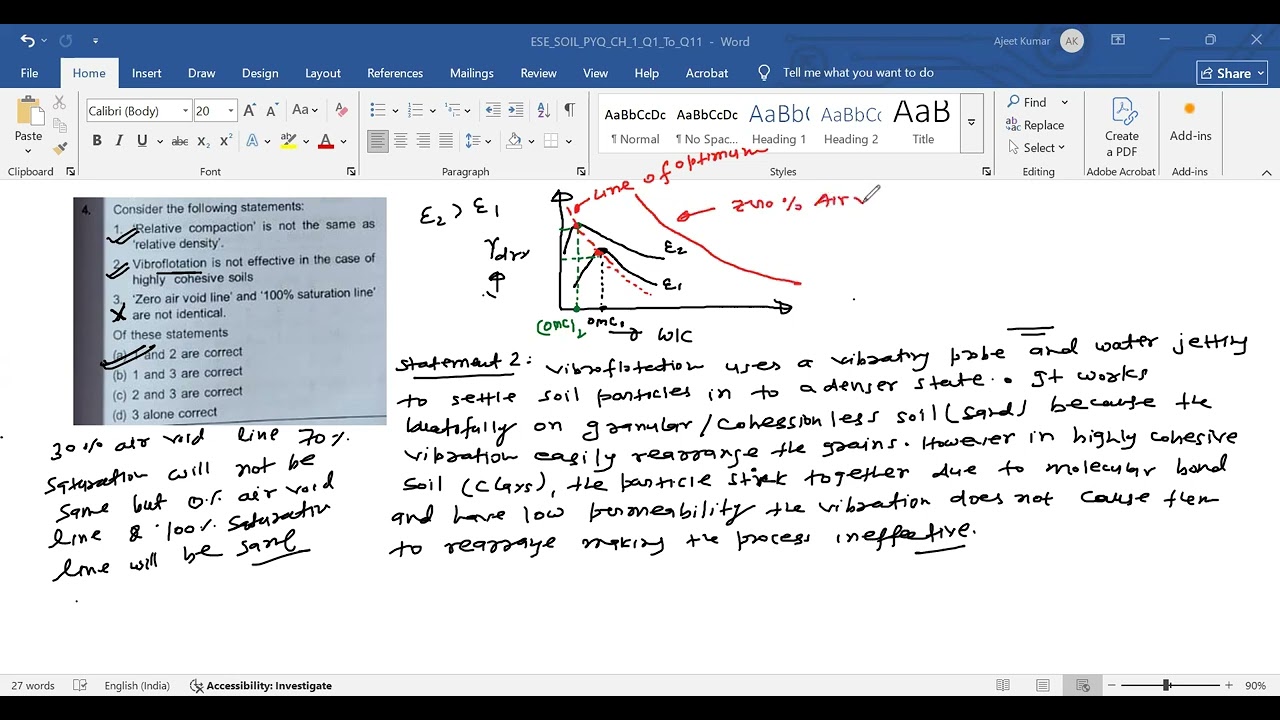 ESE_SOIL_PYQ_CH_1_Q1_To_Q11 - Word
Ajeet Kumar
AK
File Home Insert Draw Design Layout References Mailings Review View Help Acrobat Tell me what you want to do
Share
Paste
Calibri (Body) 20
AaBbCcDc AaBbCcDc AaBbC AaBbCc AaB
¶ Normal ¶ No Spac... Heading 1 Heading 2 Title
Find
Replace
Select
Create a PDF
Add-ins
Clipboard Font Paragraph Styles Editing Adobe Acrobat Add-ins
4. Consider the following statements:
1. 'Relative compaction' is not the same as
'relative density'.
2. Vibroflotation is not effective in the case of
highly cohesive soils
3. 'Zero air void line' and '100% saturation line'
are not identical.
Of these statements
(a) 1 and 2 are correct
(b) 1 and 3 are correct
(c) 2 and 3 are correct
(d) 3 alone correct
30% air void line 70%
saturation will not be
same but 0% air void
line & 100% saturation
line will be same
E2 > E1
γdry
Line of optimum
Zero % Air v
E2
E1
(OMC)2 OMC1 W/C
Statement 2: Vibroflotation uses a vibrating probe and water jetting
to settle soil particles in to a denser state. It works
on granular/cohessionless soil (sand) because the
vibration easily rearrange the grains. However in highly cohesive
soil (clays), the particle stick together due to molecular bond
and have low permeability the vibration does not cause them
to rearrange making the process ineffective.
27 words English (India) Accessibility: Investigate
90%